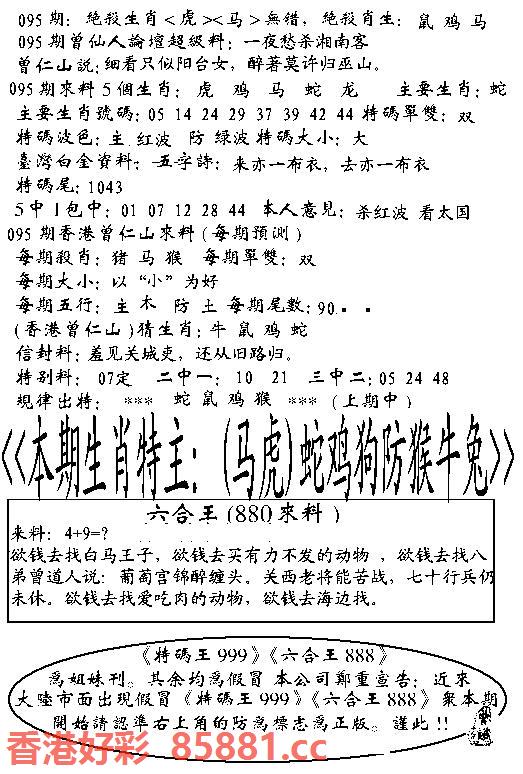 095期: 绝殺生肖<虎><马>無错, 绝殺肖生: 鼠 鸡 马
095期曾仙人論壇超級料: 一夜愁杀湘南客
曾仁山説: 细看只似阳台女, 醉著莫许归巫山。
095期來料5個生肖: 虎 鸡 马 蛇 龙 主要生肖: 蛇
主要生肖號碼: 05 14 24 29 37 39 42 44 特碼單雙: 双
特碼波色: 主 红波 防 绿波 特碼大小: 大
臺灣白金資料: 五字詩: 来亦一布衣, 去亦一布衣
特碼尾: 1043
5中1包中: 01 07 12 28 44 本人意見: 杀红波 看太国
095期香港曾仁山來料(每期預测)
每期殺肖: 猪 马 猴 每期單雙: 双
每期大小: 以“小”为好
每期五行: 主 木 防 土 每期尾數: 90. . .
(香港曾仁山)猜生肖: 牛 鼠 鸡 蛇
信封料: 羞见关城吏, 还从旧路归。
特别料: 07定 二中一: 10 21 三中二: 05 24 48
規律出特: *** 蛇 鼠 鸡 猴 *** (上期中)
《本期生肖特主: (马虎)蛇鸡狗防猴牛兔》
六合王(880來料)
来料: 4+9=?
欲钱去找白马王子, 欲钱去买有力不发的动物, 欲钱去找八
弟曾道人说: 葡萄宫锦醉缠头。关西老将能苦战, 七十行兵仍
未休。欲钱去找爱吃肉的动物, 欲钱去海边找。
《特碼王999》《六合王888》
爲姐妹刊。其余均爲假冒 本公司鄭重宣告: 近來
大陸市面出現假冒《特碼王999》《六合王888》衆本期
開始請認準右上角的防爲標志爲正版。謹此!!
香港好彩 85881.cc